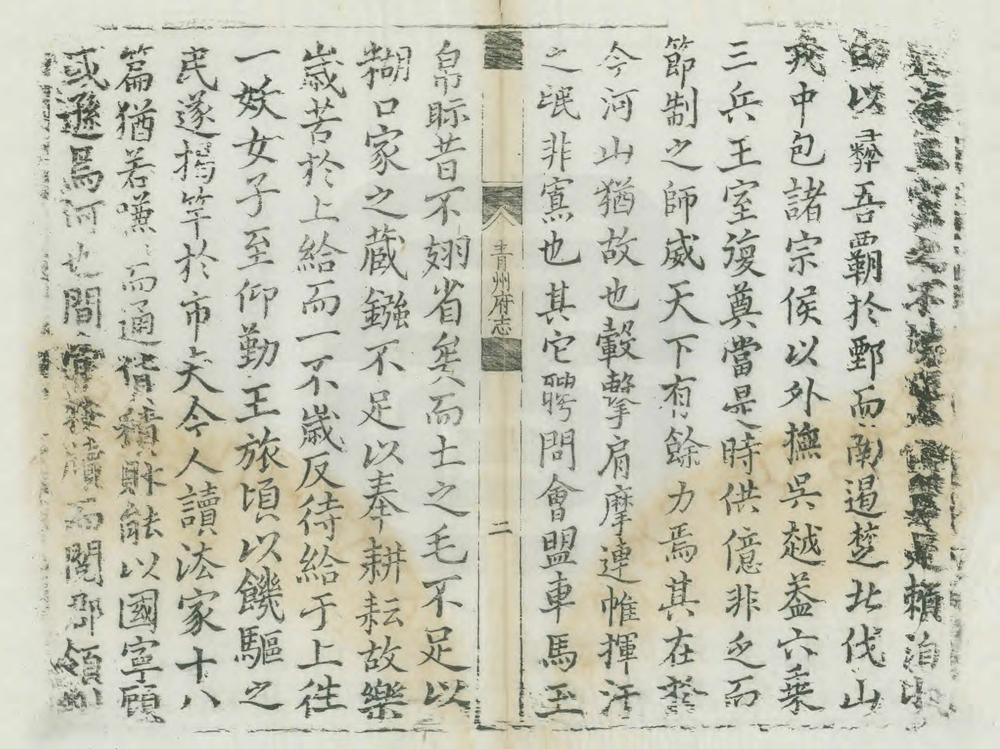 不 賴洎
以彛吾覇於鄄而南遏楚北伐山
戎中包諸宗侯以外撫吳越葢六乗
三兵王室復奠當是時供億非乏而
節制之師威天下有餘力焉其在
今河山猶故也轂擊肩摩連帷揮汗
之氓非寡也其它聘問會盟車馬玉
青州府志
二
帛眎昔不翅省矣而土之毛不足以
糊口家之蔵鏹不足以奉耕耘故樂
歲苦於上給而一不歲反待給于上往
一妖女子至仰勤王旅頃以饑驅之
民遂揭竿於市夫今人讀法家十八
篇猶若嗛嗛而通貨積財能以國寧顧
或遜焉何也間 而閱郡領